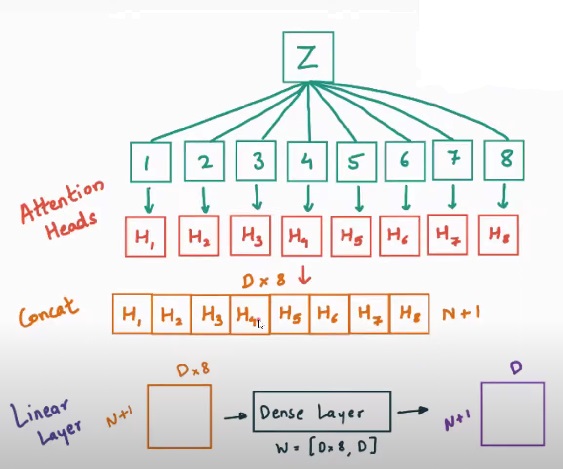 Z
1 2 3 4 5 6 7 8
Attention
Heads
H1 H2 H3 H4 H5 H6 H7 H8
D x 8
Concat
H1 H2 H3 H4 H5 H6 H7 H8 N+1
D x 8 D
Linear
Layer
N+1 Dense Layer N+1
W = [D x 8, D]